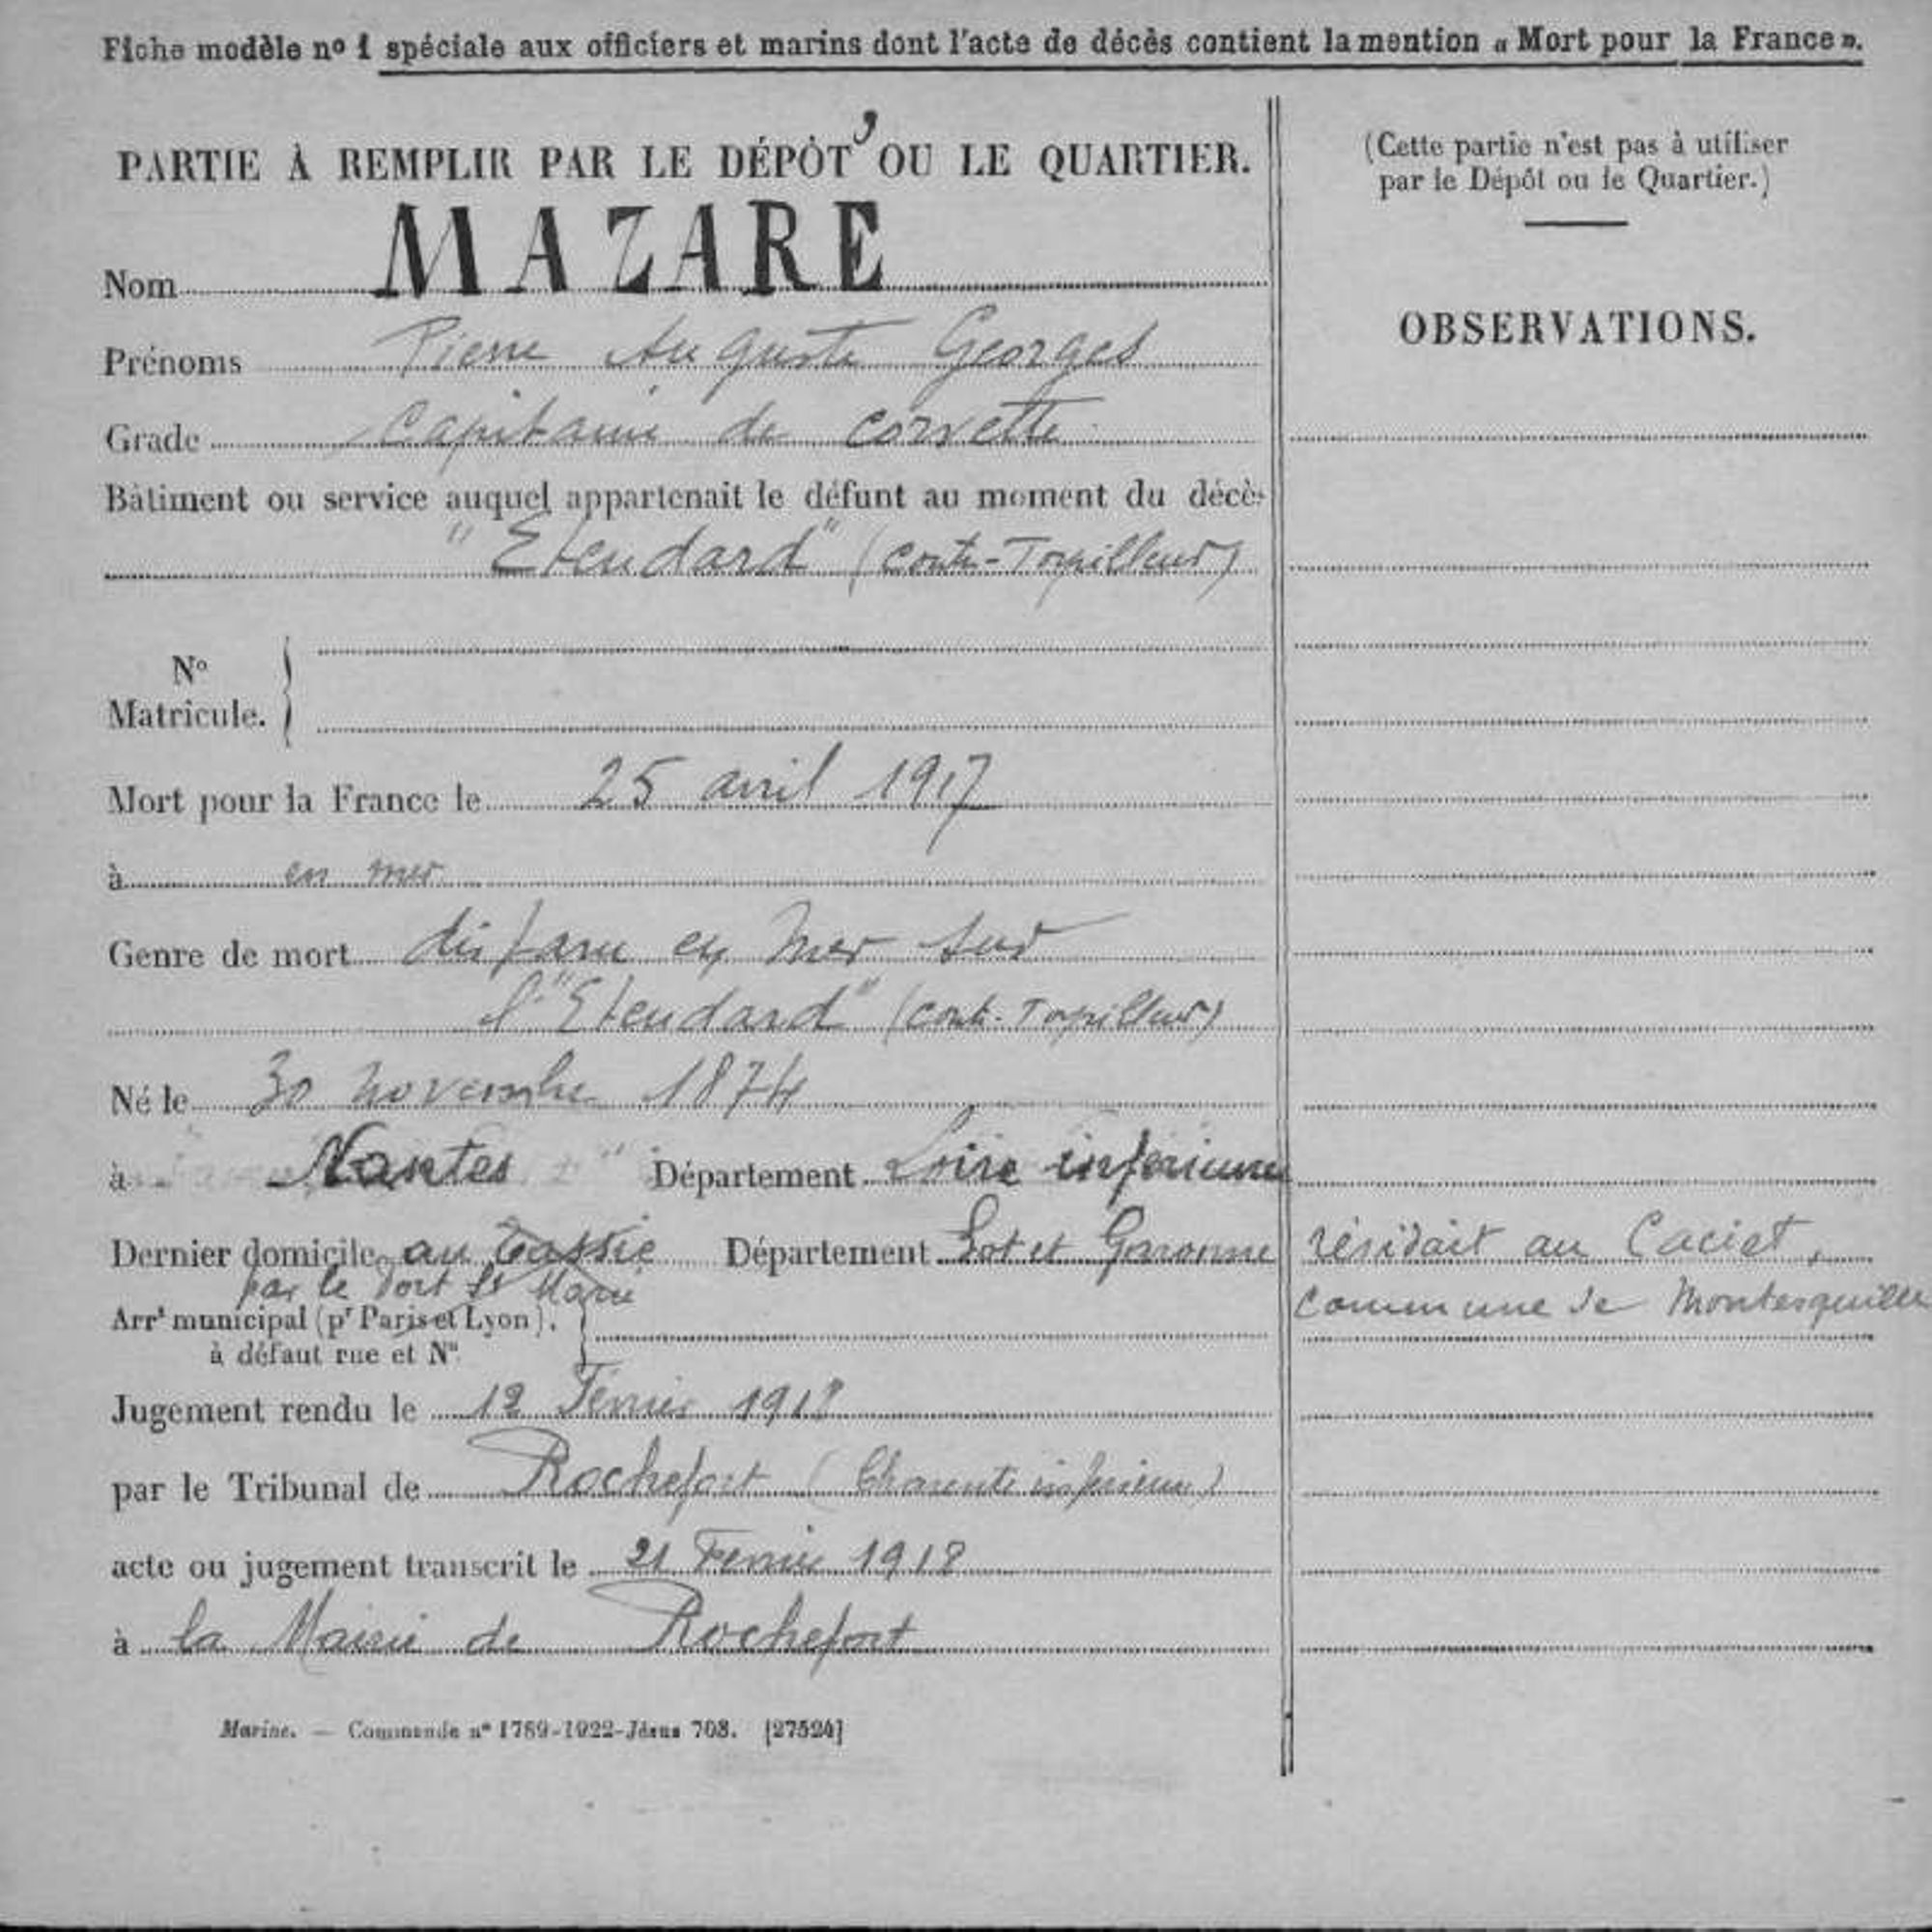 Fiche modèle nº 1 spéciale aux officiers et marins dont l'acte de décès contient la mention « Mort pour la France ».
PARTIE À REMPLIR PAR LE DÉPÔT OU LE QUARTIER.
Nom MAZARÉ
Prénoms Pierre Auguste Georges
Grade Capitaine de corvette
Bâtiment ou service auquel appartenait le défunt au moment du décès
"Etendard" (contre-Torpilleur)
Nº
Matricule.
Mort pour la France le 25 avril 1917
à en mer
Genre de mort disparu en mer sur
l'"Etendard" (contr. Torpilleur)
Né le 30 novembre 1874
à Nantes Département Loire inférieure
Dernier domicile au Département Lot et Garonne
par le Port Ste Marie
Arrt municipal (pr Paris et Lyon),
à défaut rue et Nº
Jugement rendu le 12 Février 1918
par le Tribunal de Rochefort (Charente inférieure)
acte ou jugement transcrit le 21 Février 1918
à la Mairie de Rochefort
Marine. — Commande nº 1789-1922-Jésus 708. [27524]
(Cette partie n'est pas à utiliser
par le Dépôt ou le Quartier.)
OBSERVATIONS.
résidait au
commune de Montesquieu